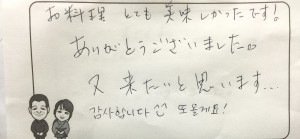 お料理 とても 美味しかったです!
ありがとうございました。
又 来たいと思います...
감사합니다 ^^ 또올게요!